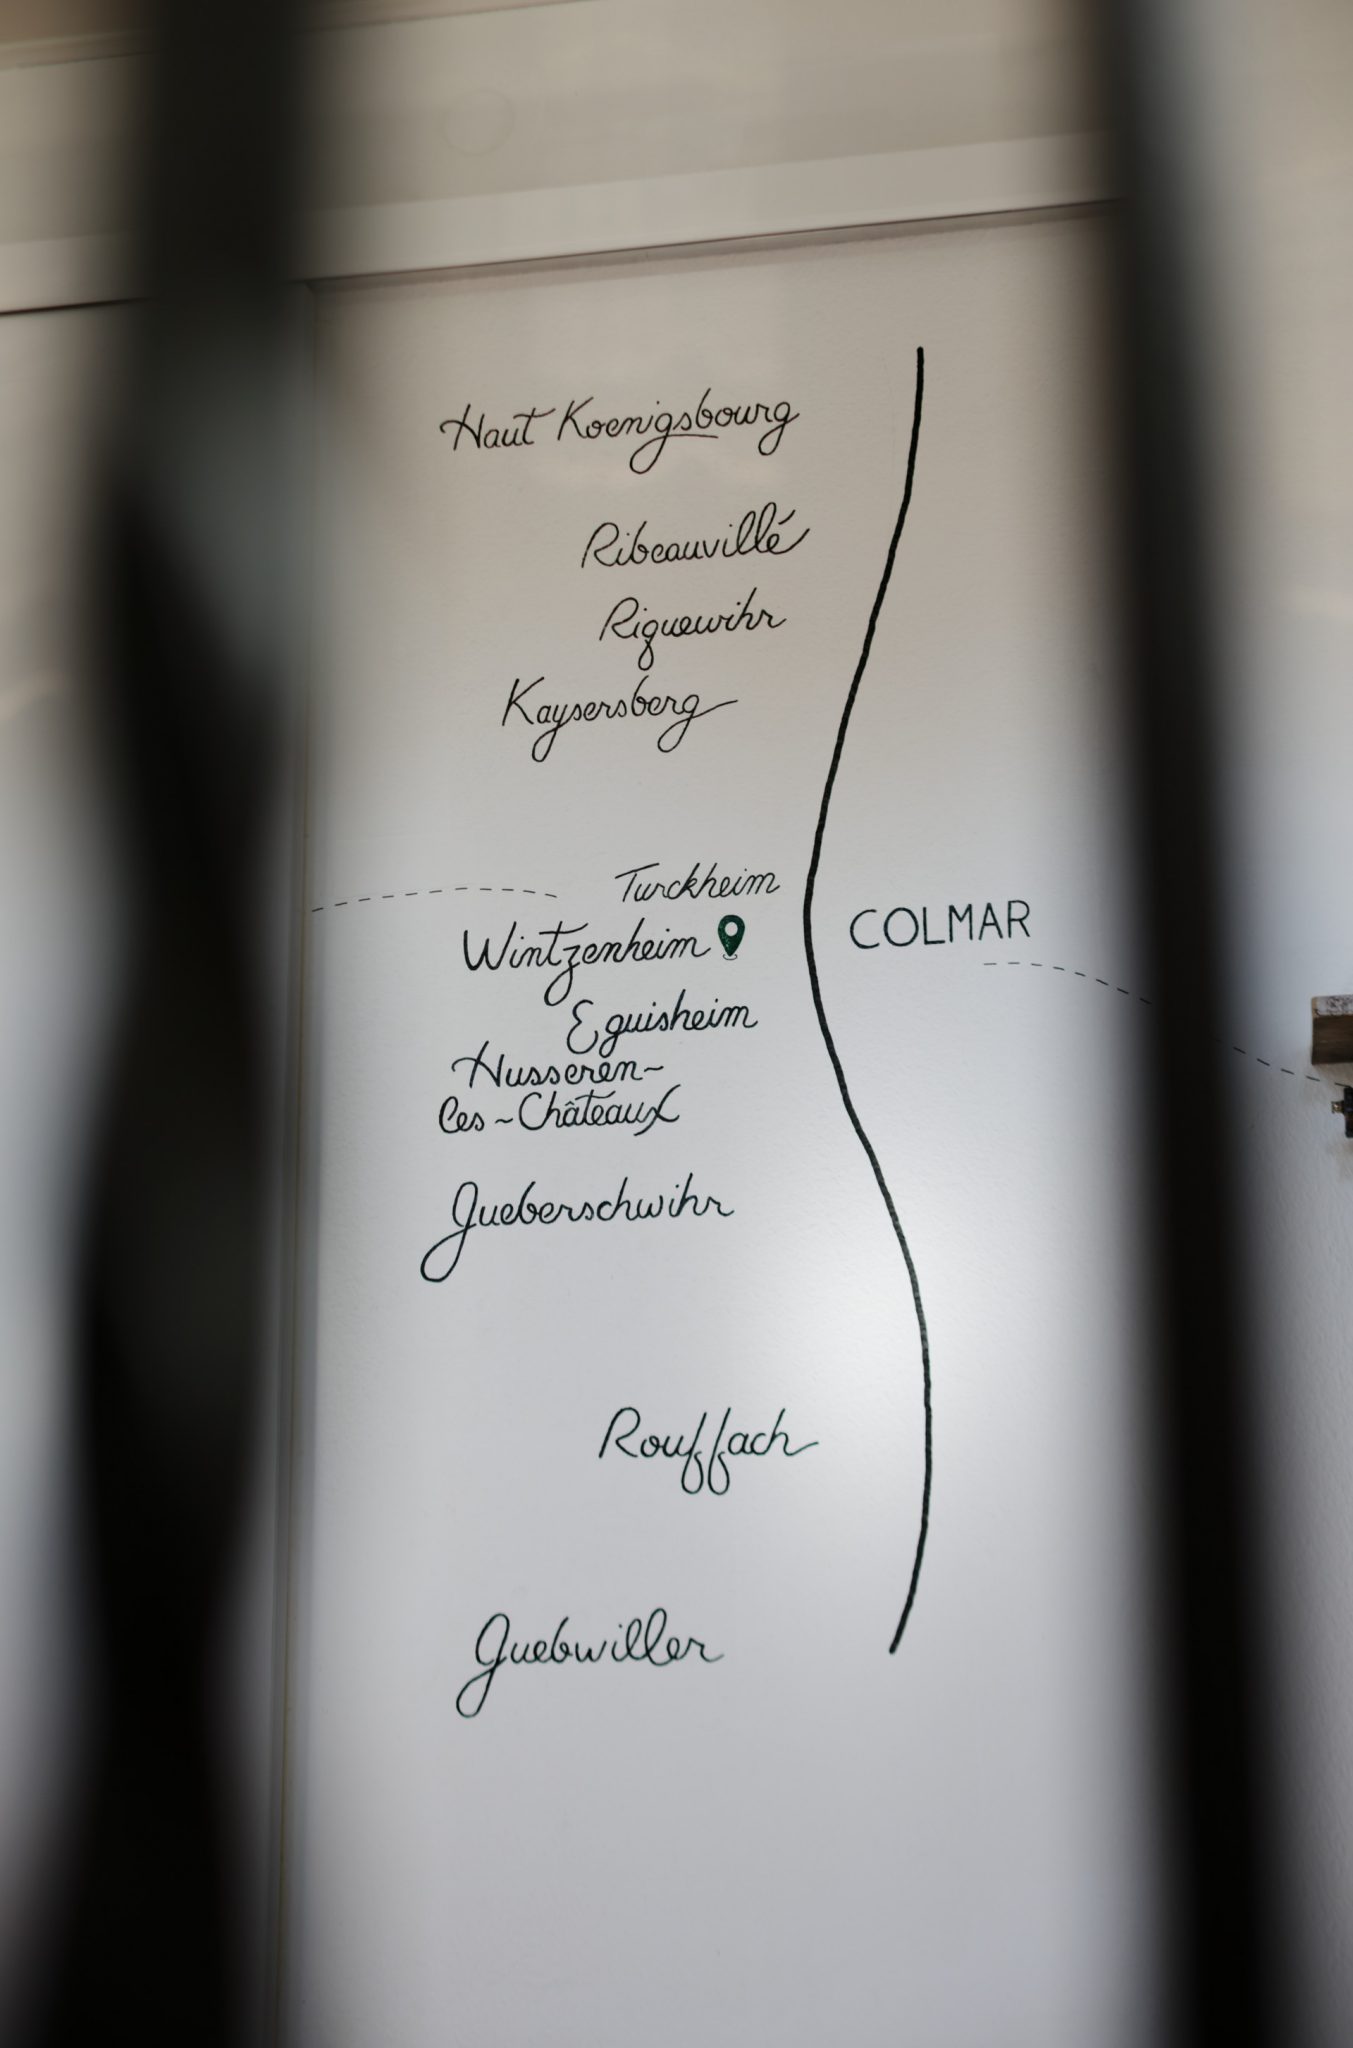 Haut Koenigsbourg
Ribeauvillé
Riquewihr
Kaysersberg
Turckheim
Wintzenheim
COLMAR
Eguisheim
Husseren~
les~Châteaux
Gueberschwihr
Rouffach
Guebwiller